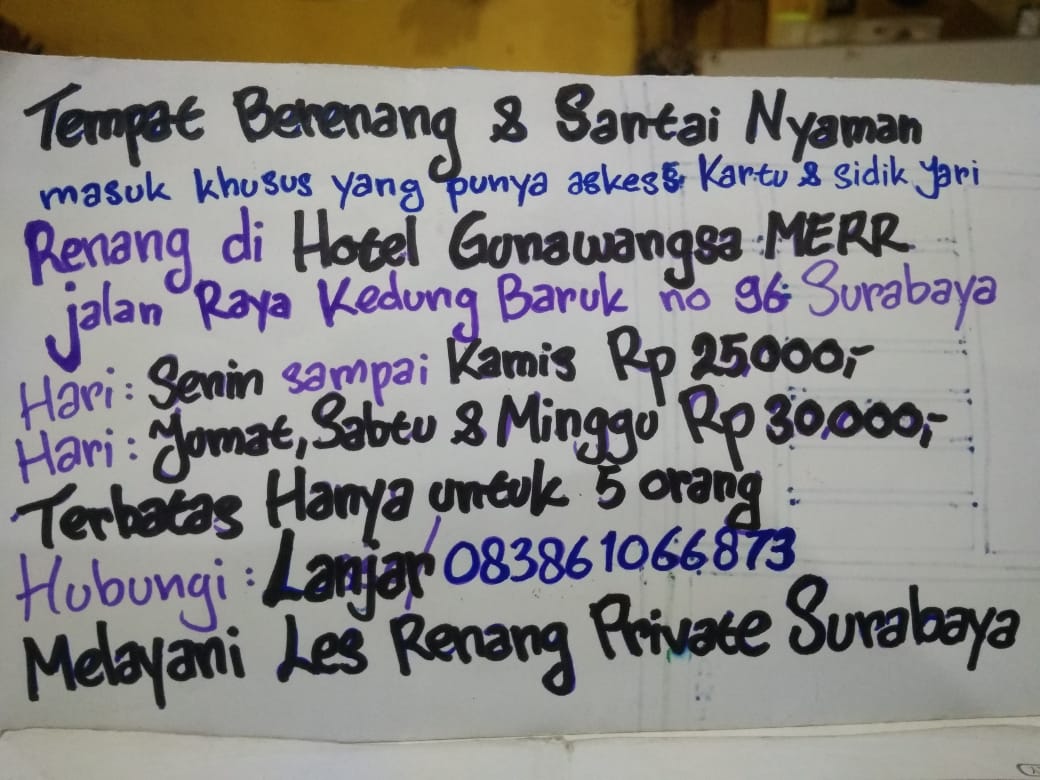 Tempat Berenang & Santai Nyaman
masuk khusus yang punya askess Kartu & sidik Jari
Renang di Hotel Gunawangsa MERR
jalan Raya Kedung Baruk no 96 Surabaya
Hari: Senin sampai Kamis Rp 25.000,-
Hari: Jumat, Sabtu & Minggu Rp 30.000,-
Terbatas Hanya untuk 5 orang
Hubungi: Lanjar 083861066873
Melayani Les Renang Private Surabaya